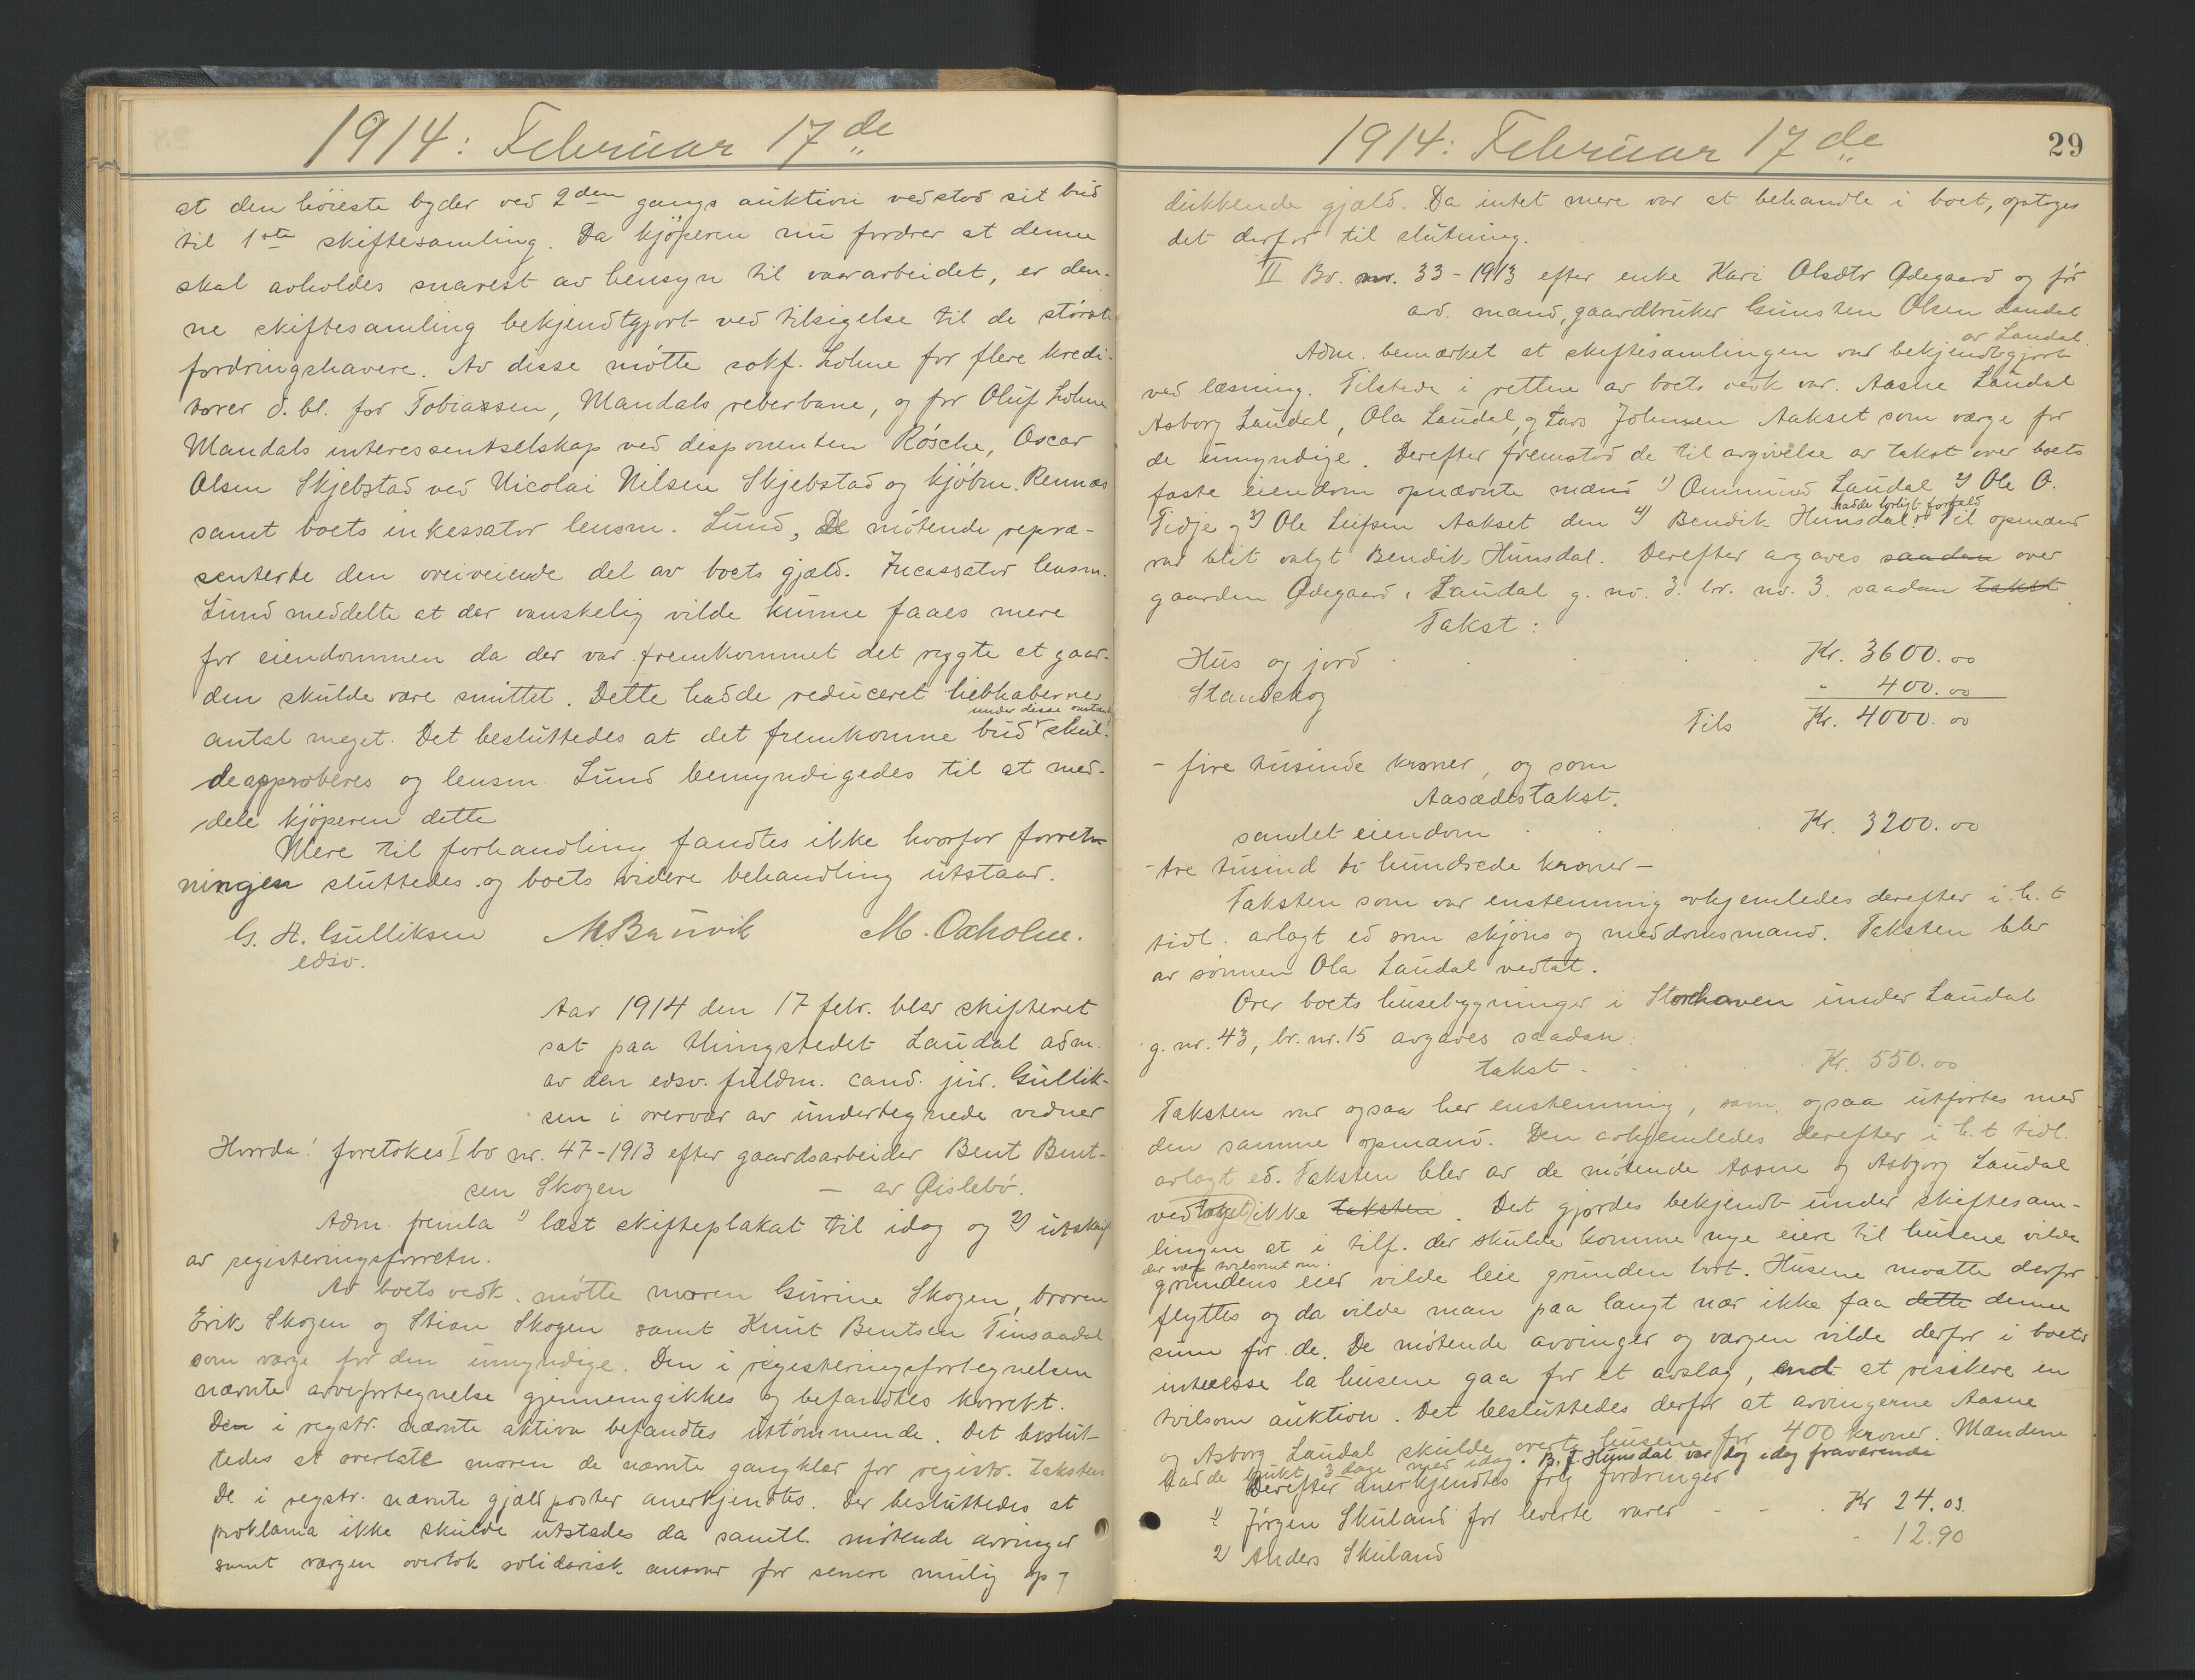 1914: Februar 17de
at den höieste byder ved 2den gangs auktion vedstod sit bud
til 1ste skiftesamling. Da kjöperen nu fordrer at denne
skal avholdes snarest av hensyn til vaararbeidet, er den-
ne skiftesamling bekjendtgjort ved tilsigelse til de störste
fordringshavere. Av disse mötte sakf. Lohne for flere kredi-
torer d. bl. for Tobiassen, Mandals reberbane, og for Oluf Lohne
Mandals interessentselskap ved disponenten Rösche, Oscar
Olsen Skjebstad ved Nicolai Nilsen Skjebstad og kjöbm. Rennes
samt boets inkassator lensm. Lund, De mötende repræ-
senterte den overveiende del av boets gjæld. Incassator lensm.
Lund meddelte at der vanskelig vilde kunne faaes mere
for eiendommen da der var fremkommet det rygte at gaar-
den skulde være smittet. Dette hadde reduceret liebhabernes
under disse omstænd.
antal meget. Det besluttedes at det fremkomne bud skul-
de approberes og lensm. Lund bemyndigedes til at med-
dele kjöperen dette
Mere til forhandling fandtes ikke hvorfor forretn-
ningen sluttedes og boets videre behandling utstaar.
G. A. Gulliksen M Bruvik M. Oxholm.
edsv.
Aar 1914 den 17 febr. blev skifteret
sat paa thingstedet Laudal adm.
av den edsv. fuldm. cand. jur. Gullik-
sen i overvær av undertegnede vidner
Hvorda! foretokes I bo nr. 47-1913 efter gaardsarbeider Bent Bent-
sen Skogen — av Øislebö.
Adm. fremla 1) læst skifteplakat til idag og 2) utskrift
av registeringsforretn.
Av boets vedk. mötte moren Gurine Skogen, broren
Erik Skogen og Stian Skogen samt Knut Bentsen Tinsaadal
som værge for den umyndige. Den i registeringsfortegnelsen
nævnte arvefortegnelse gjennemgikkes og befandtes korrekt.
Den i registr. nævnte aktiva befandtes uttömmende. Det beslut-
tedes at overlate moren de nævnte gangklær for registr. taksten
De i registr. nævnte gjældposter anerkjendtes. Der besluttedes at
proklama ikke skulde utstedes da samtl. mötende arvinger
samt værgen overtok solidarisk ansvar for senere mulig op-
1914: Februar 17de 29
dukkende gjæld. Da intet mere var at behandle i boet, optoges
det derfor til slutning.
II Bo. nr. 33-1913 efter enke Kari Olsdtr Ødegaard og för
avd. mand, gaardbruker Gunsten Olsen Laudal
av Laudal.
Adm. bemærket at skiftesamlingen var bekjendtgjort
ved læsning. Tilstede i retten av boets vedk var. Aasne Laudal
Asborg Laudal, Ola Laudal, og Lars Johnsen Aakset som værge for
de umyndige. Derefter fremstod de til avgivelse av takst over boets
faste eiendom opnævnte mænd 1) Ommund Laudal 2) Ole O.
hadde lovligt forfald
Tidje og 3) Ole Leifsen Aakset den 4) Bendik Hunsdal. Til opmand
var blit valgt Bendik Hunsdal. Derefter avgaves saadan over
gaarden Ødegaard i Laudal g. no. 3. br. no. 3. saadan takst
Takst:
Hus og jord . . . . Kr. 3600.00
Standskog " 400.00
Tils Kr. 4000.00
- fire tusinde kroner, og som
Aasædestakst.
samlet eiendom . . . Kr. 3200.00
- tre tusind to hundrede kroner -
Taksten som var enstemmig avhjemledes derefter i h. t
tidl. avlagt ed som skjöns og meddomsmand. Taksten blev
av sönnen Ola Laudal vedtat.
Over boets husebygninger i Storehaven under Laudal
g. nr. 43, br. nr. 15 avgaves saadan
takst . . . Kr. 550.00
Taksten var ogsaa her enstemmig, som ogsaa utförtes med
den samme opmand. Den avhjemledes derefter i h. t tidl.
avlagt ed. Taksten blev av de mötende Aasne og Asbjorg Laudal
vedtaget ikke taksten. Det gjordes bekjendt under skiftesam-
lingen at i tilf. der skulde komme nye eiere til husene vilde
der være tvilsomt om
grundens eier vilde leie grunden bort. Husene maatte derfor
flyttes og da vilde man paa langt nær ikke faa dette denne
sum for de. De mötende arvinger og værgen vilde derfor i boets
interesse la husene gaa for et avslag, end at risskere en
tvilsom auktion. Det besluttedes derfor at arvingerne Aasne
og Asborg Laudal skulde overta husene for 400 kroner. Mændene
havde brukt 3 dage med idag. B. J. Hunsdal var dog idag fraværende
Derefter anerkjendtes fölg fordringer
1) Jörgen Skuland for leverte varer - - . Kr 24.03.
2) Anders Skuland - 12.90